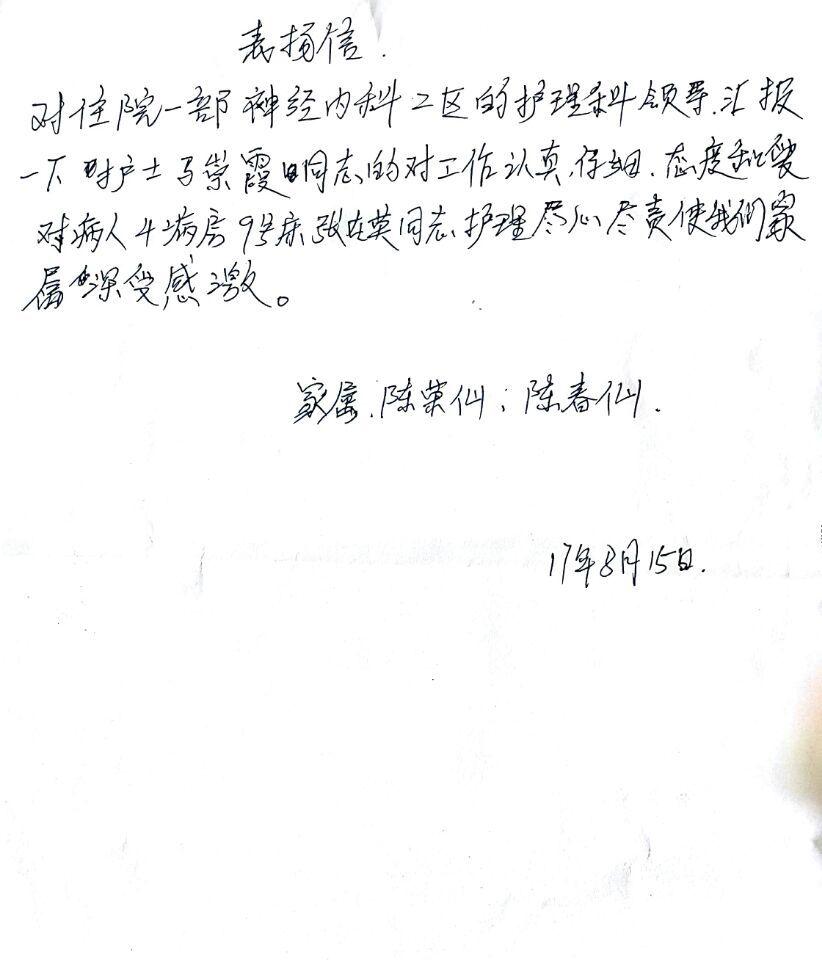 表扬信.
对住院一部神经内科二区的护理科领导.汇报
一下对护士马崇霞同志的对工作认真.仔细.态度和蔼
对病人4病房9号床张在英同志.护理尽心尽责使我们家
属深受感激。
家属.陈荣仙;陈春仙.
17年8月15日.